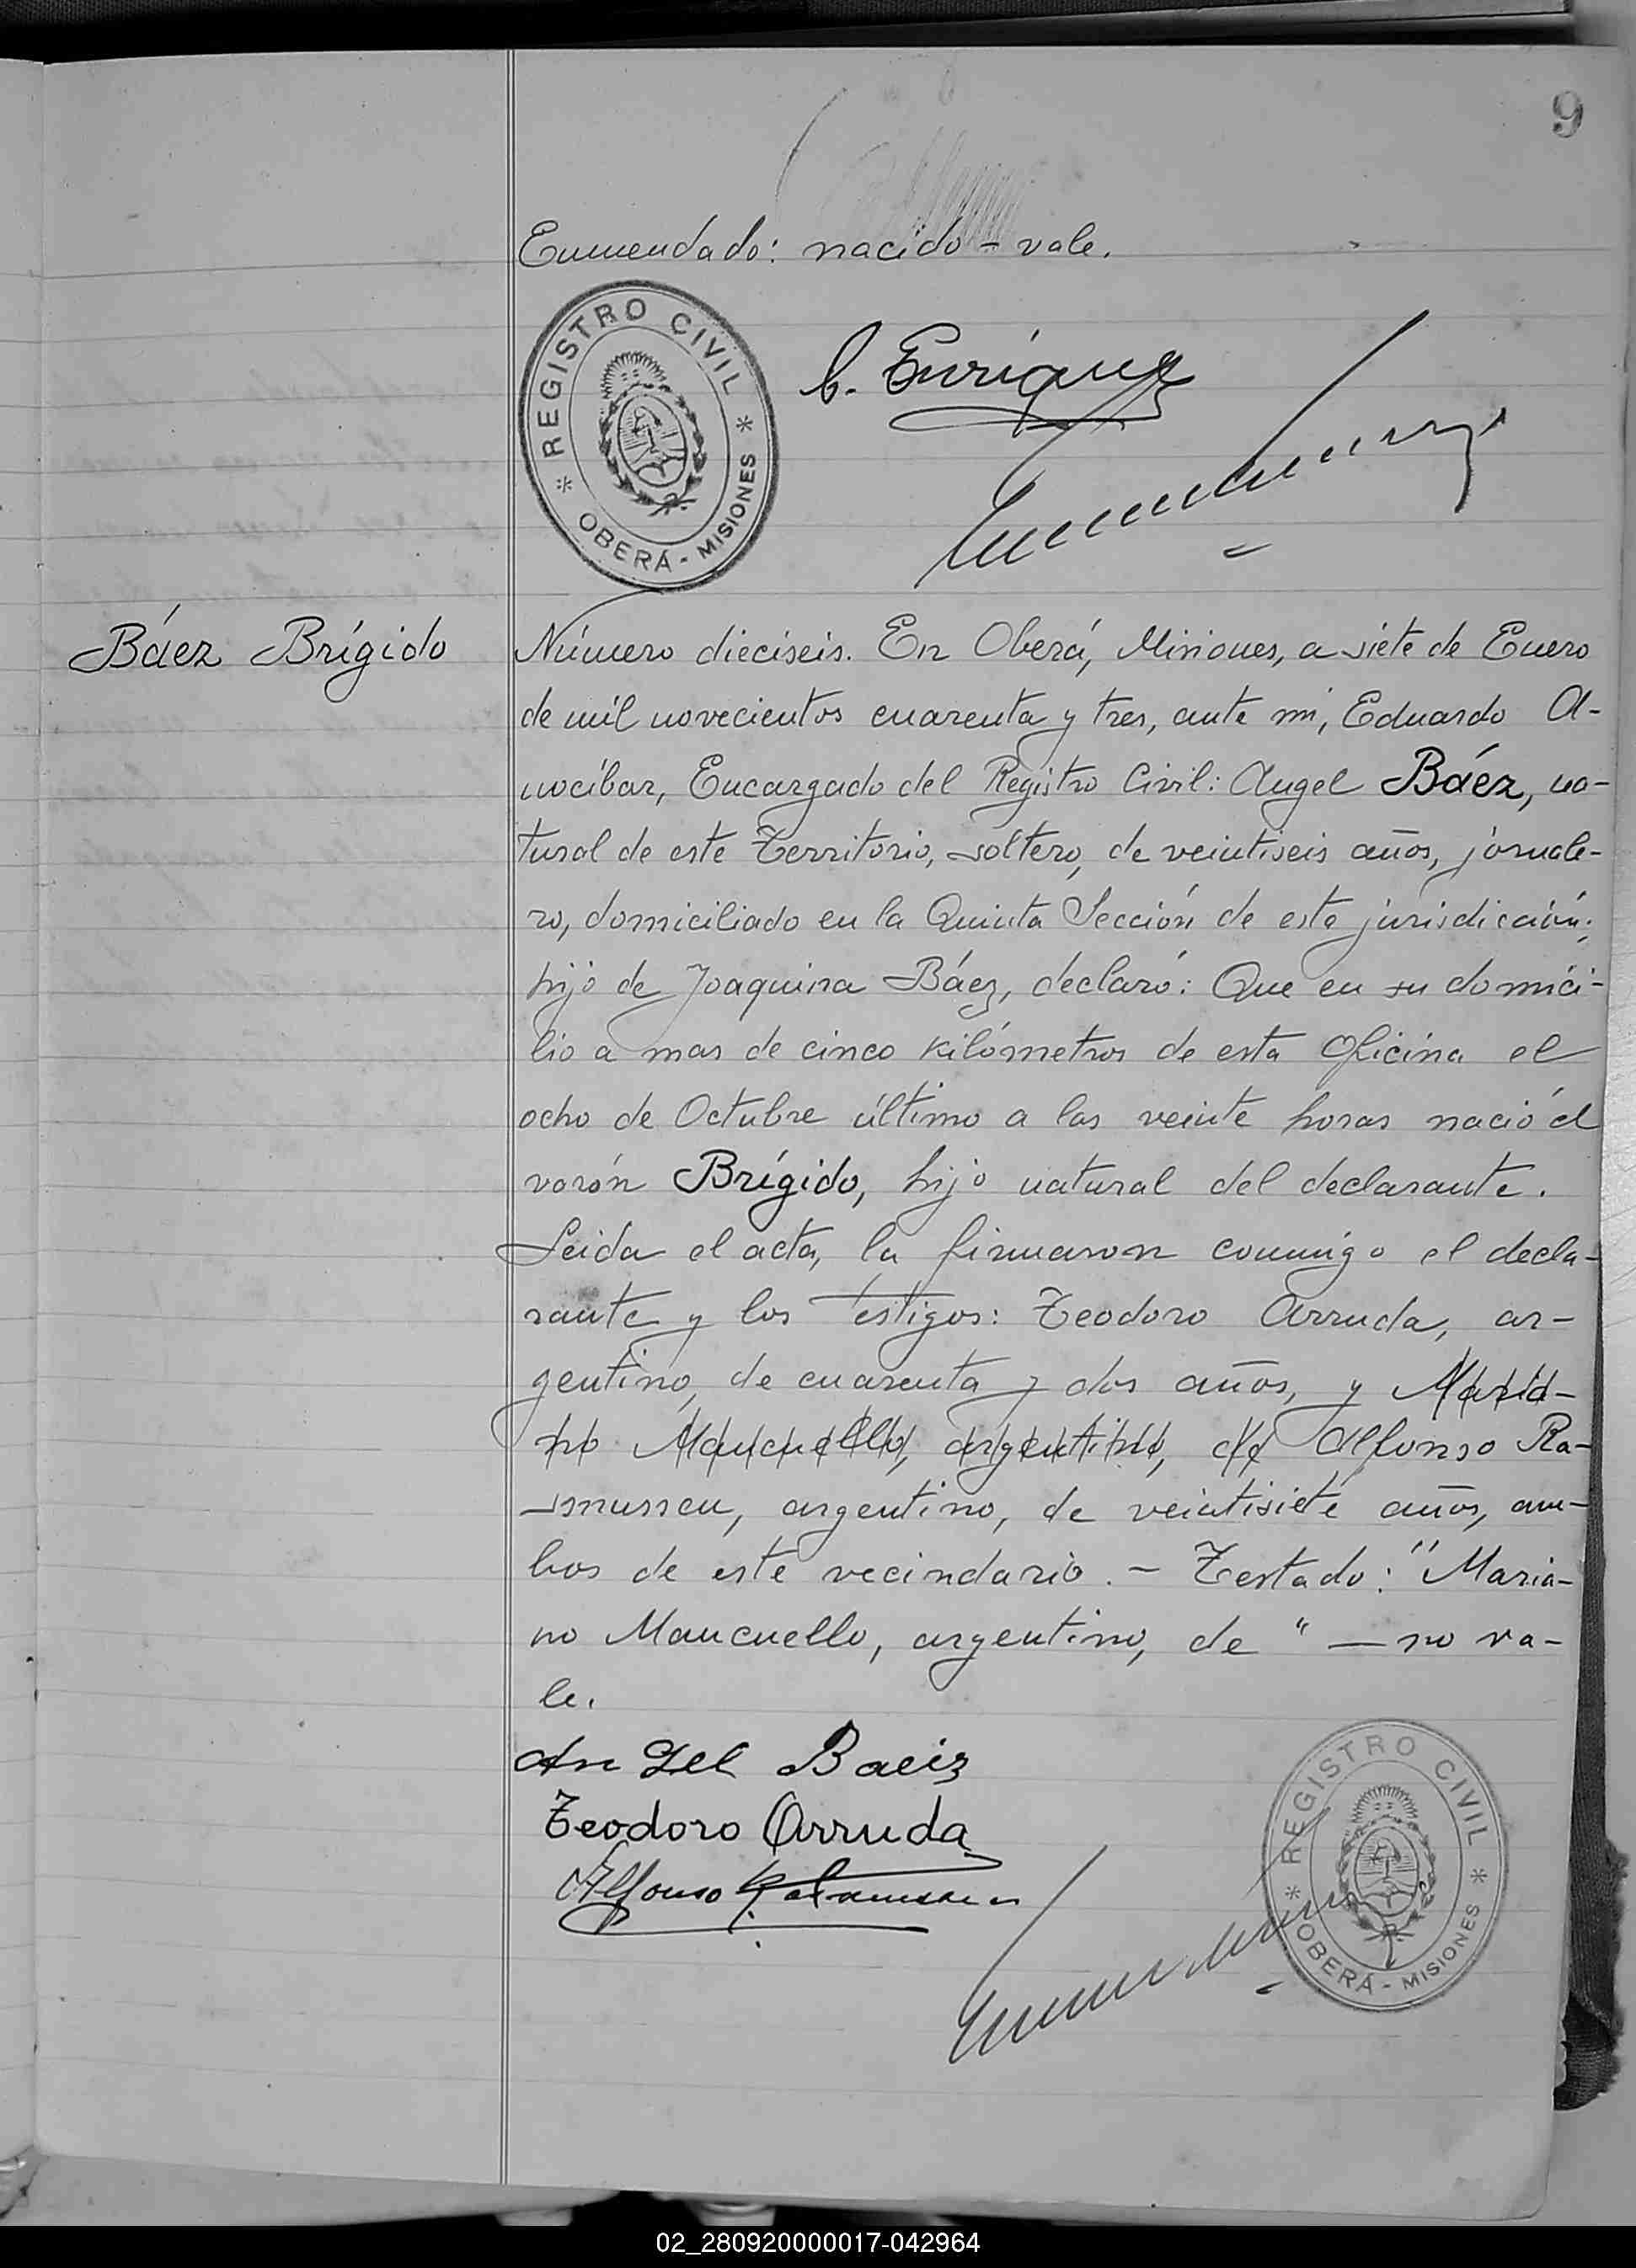 9
Enmendado: nacido - vale.
REGISTRO CIVIL
OBERÁ - MISIONES
C. Enriquez
Báez Brígido
Número dieciseis. En Oberá, Misiones, a siete de Enero
de mil novecientos cuarenta y tres, ante mi, Eduardo A-
nocíbar, Encargado del Registro Civil: Angel Báez, na-
tural de este Territorio, soltero, de veintiseis años, jornale-
ro, domiciliado en la Quinta Sección de esta jurisdicción;
hijo de Joaquina Báez, declaró: Que en su domici-
lio a mas de cinco kilómetros de esta Oficina el
ocho de Octubre último a las veinte horas nació el
varón Brígido, hijo natural del declarante.
Leida el acta, la firmaron conmigo el decla-
rante y los testigos: Teodoro Arruda, ar-
gentino, de cuarenta y dos años, y Maria-
no Mancuello, argentino, de Alfonso Ra-
smussen, argentino, de veintisiete años, am-
bos de este vecindario. - Testado: "Maria-
no Mancuello, argentino, de" — no va-
le.
Angel Baeiz
Teodoro Arruda
Alfonso
REGISTRO CIVIL
OBERÁ - MISIONES
02_280920000017-042964